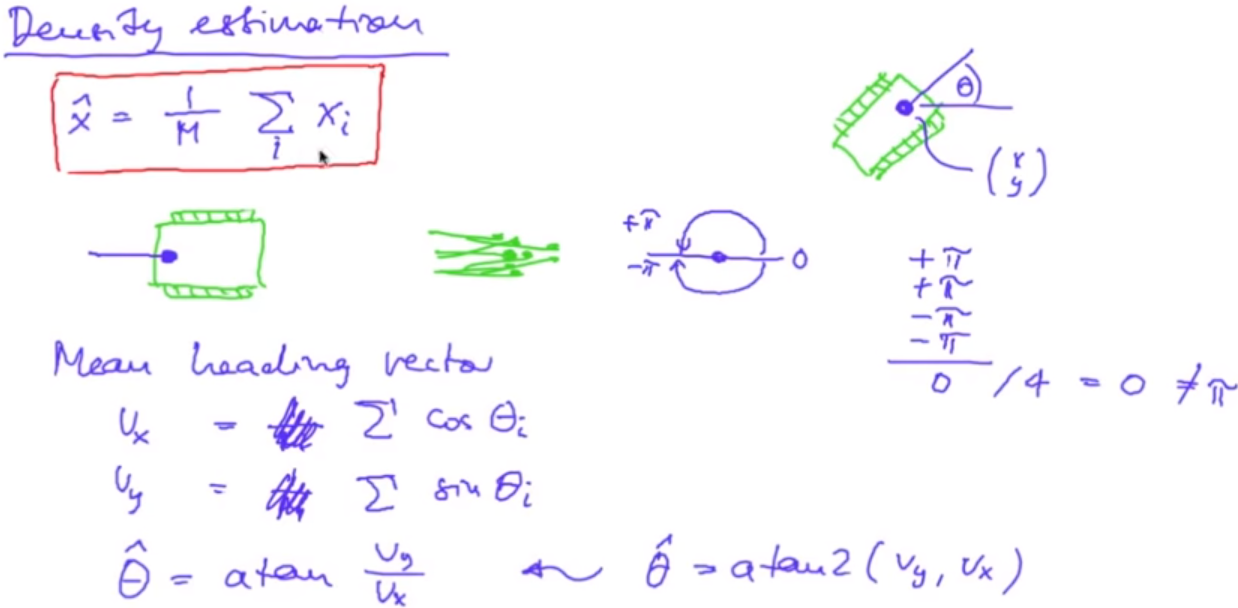 Density estimation
x̂ = 1/M ∑_i x_i
θ
(x y)
+π
-π
0
+π
+π
-π
-π
0 /4 = 0 ≠ π
Mean heading vector
v_x = ∑ cos θ_i
v_y = ∑ sin θ_i
θ̂ = atan v_y/v_x ← θ̂ = atan2(v_y, v_x)